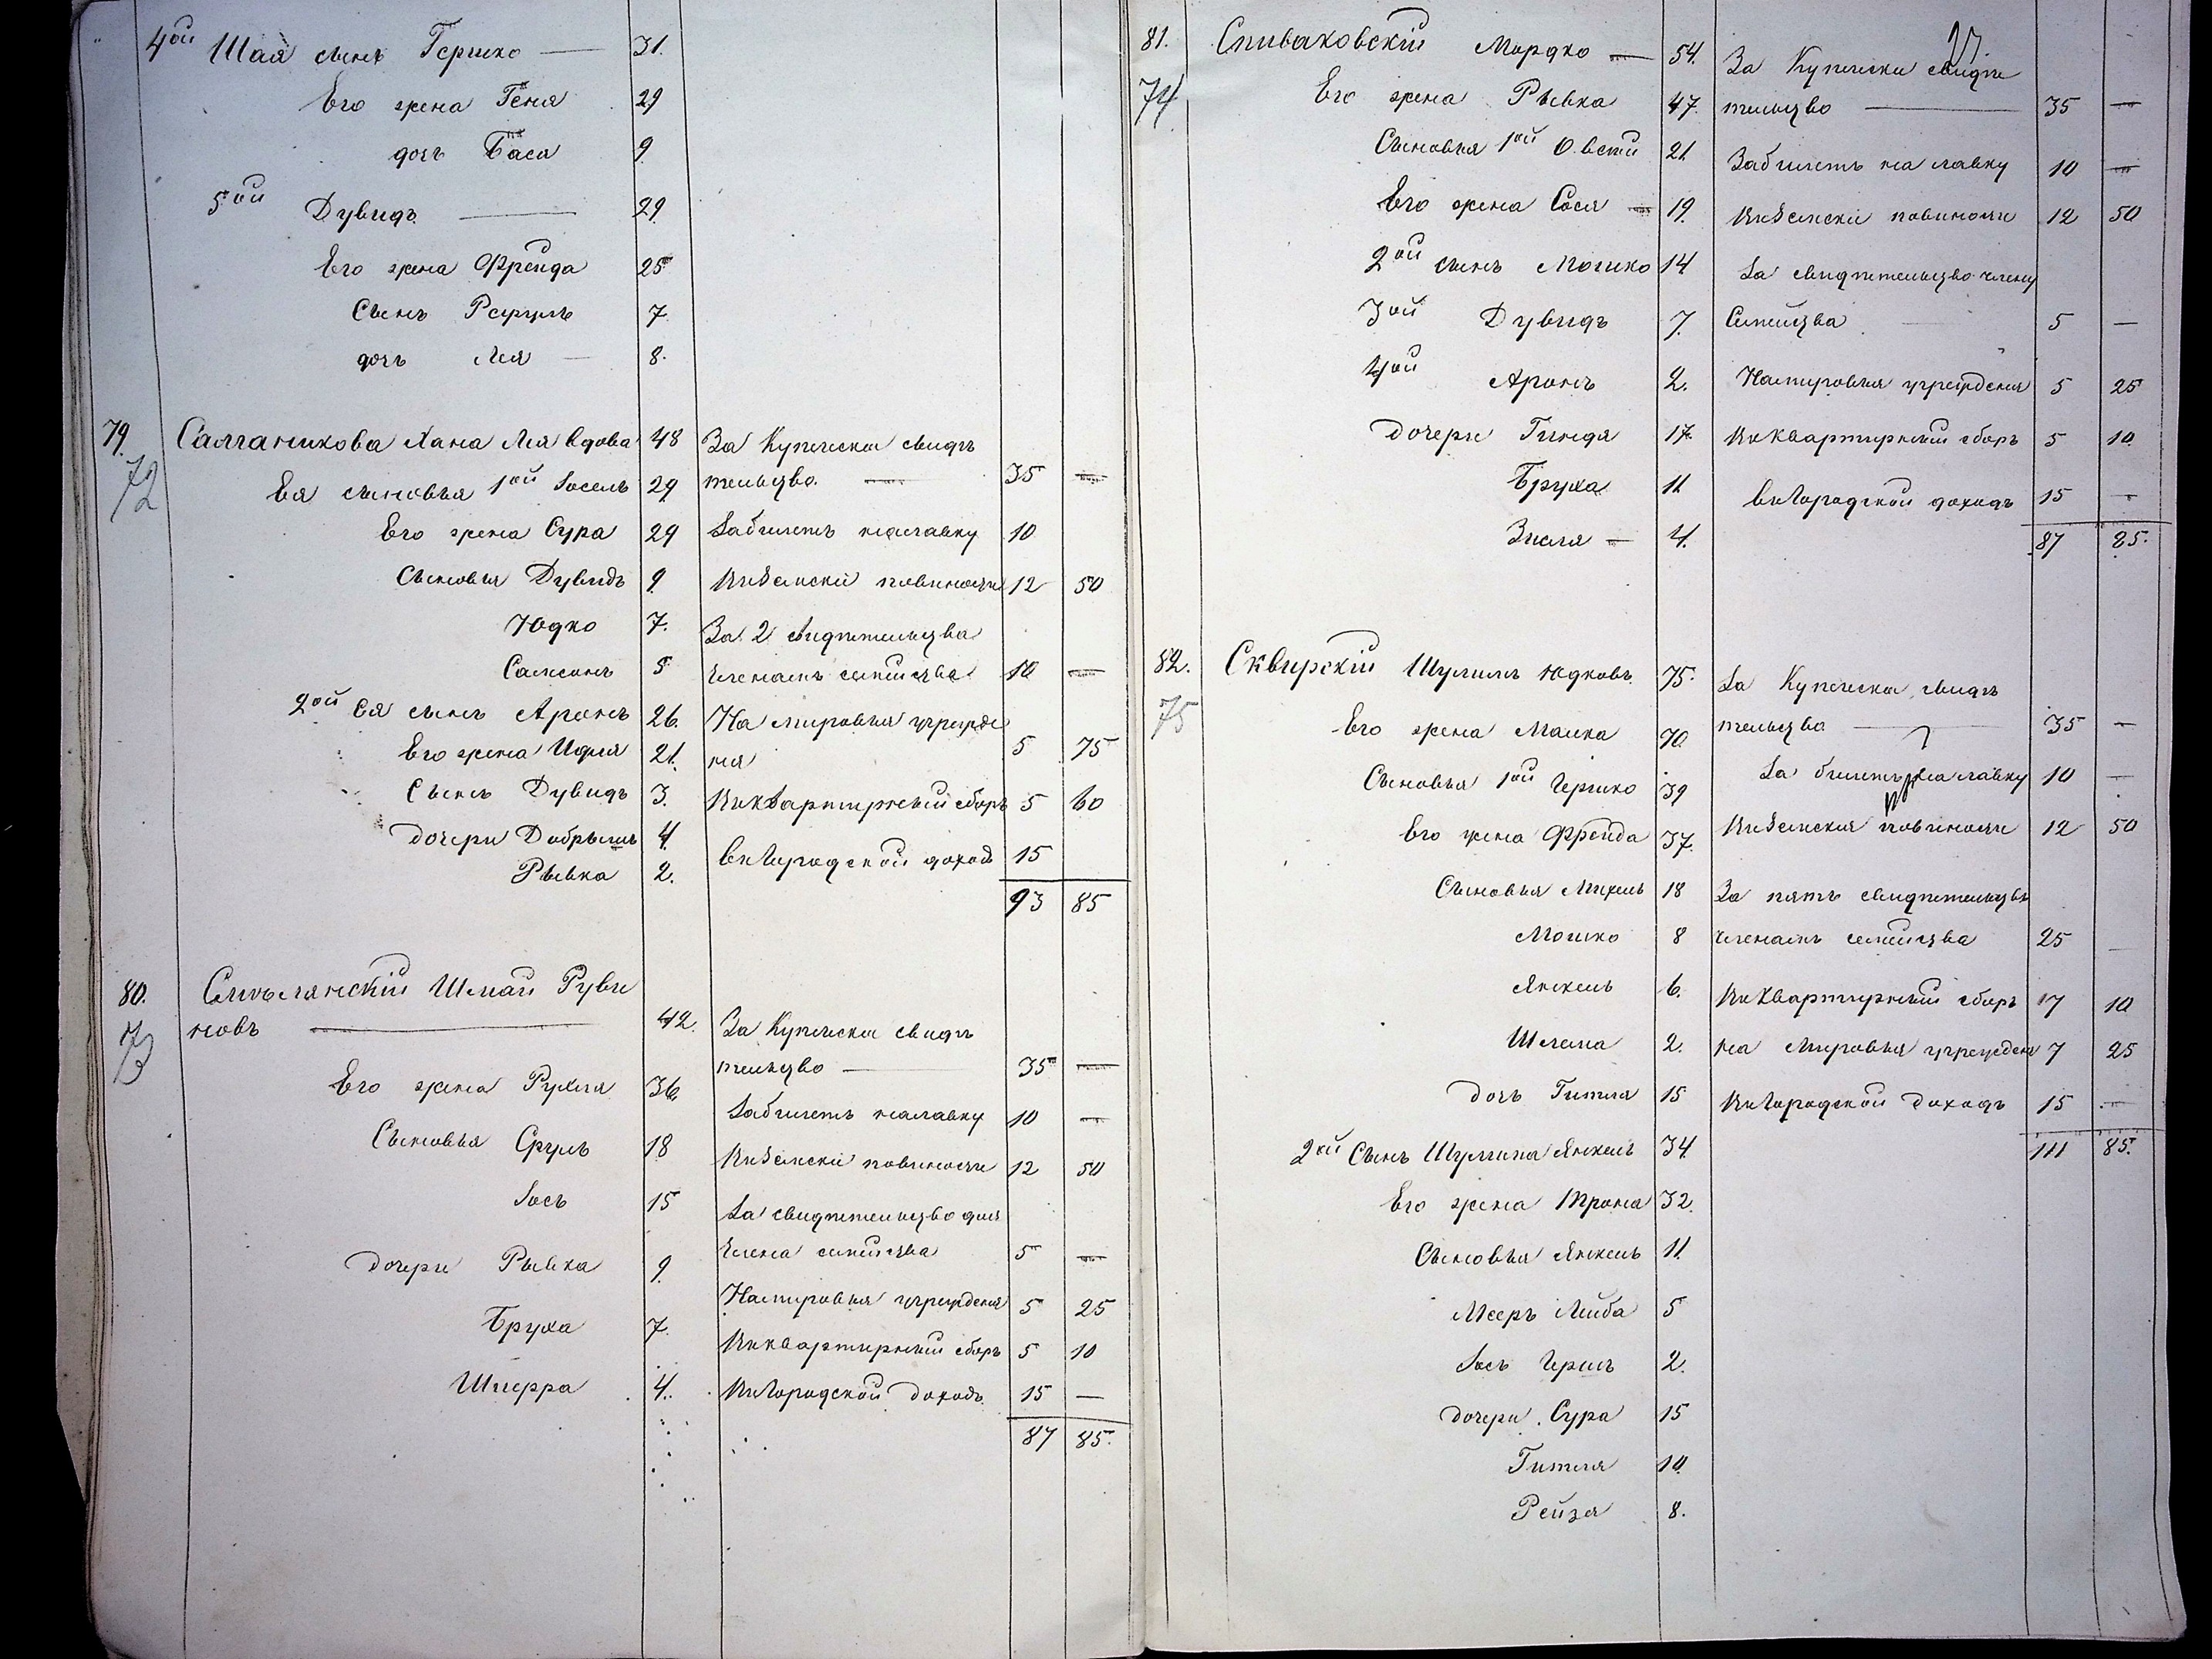 4ой Шая сынъ Гершко — 31.
Его жена Геня 29
дочь Бася 9
5ой Дувидъ — 29
Его жена Фрейда 25
Сынъ Сруль 7
дочь Лея — 8.
79. Салганикова Хана Лея вдова 48 За Купечески свидѣ
72
Ея сыновья 1ой Іосель 29 тельство — 35 —
Его жена Сура 29 Забилетъ налавку 10
Сыновья Дувидъ 9 Ивземски повиности 12 50
Юдко 7. За 2 свидѣтельства
Самсонъ 5 членамъ семейства 10 —
2ой Ея сынъ Аронъ 26. На мировыя учрежде
Его жена Идля 21. ния 5 75
Сынъ Дувидъ 3. Инквартирный сборъ 5 60
дочери Добрышъ 4.
Рывка 2. Вигородской доходъ 15
93 85
80. Смѣлянскій Шмай Руви
73 новъ — 42. За Купечески свидѣ
тельство — 35 —
Его жена Рухля 36.
Забилетъ налавку 10 —
Сыновья Сруль 18
Ивземски повиности 12 50
Іось 15 За свидѣтельство для
члена семейства 5 —
Дочери Рывка 9.
Намировыя учрежденія 5 25
Бруха 7.
Инквартирный сборъ 5 10
Шперра 4. Ивгородской доходъ 15 —
87 85.
77.
81. Спиваковскій Мордко — 54. За Купечески свидѣ
74 Его жена Рывка 47. тельство — 35 —
Сыновья 1ой Овсѣй 21. Забилетъ на лавку 10 —
Его жена Сося — 19. Ивземски повиности 12 50
2ой сынъ Мошко 14 За свидѣтельство члену
3ой Дувидъ 7. Семейства 5 —
4ой Аронъ 2. Намировыя учрежденія 5 25
Дочери Гиндя 17. Инквартирный сборъ 5 10
Бруха 11 Вигородской доходъ 15 —
Зисля — 4. 87 85.
82. Сквирскій Шулимъ Юдковъ 75. За Купечески свидѣ
75 Его жена Малка 70 тельство — 35 —
Сыновья 1ой Гершко 39 За билетъ на лавку 10 —
Его жена Фрейда 37. Ивземския повиности 12 50
Сыновья Михель 18 За пять свидѣтельствъ
Мошко 8 членамъ семейства 25 —
Янкель 6. Инквартирный сборъ 7 10
Шлема 2. на Мировыя учреждения 7 25
Дочь Гитля 15 Ивгородской Доходъ 15 —
2ой Сынъ Шулима Янкель 34. 111 85.
Его жена 32.
Сыновья Янкель 11.
Мееръ Лейба 5
Іось Гершъ 2.
Дочери Сура 15
Гитля 10.
Рейзя 8.